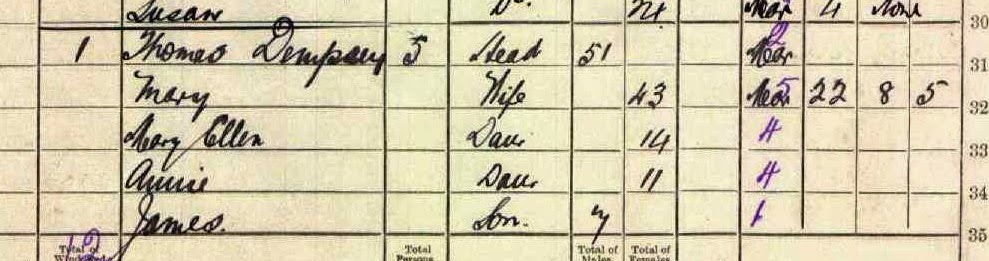 Susan Do. 21 Mar 4 None 30
1 Thomas Dempsey 5 Head 51 Mar 31
Mary Wife 43 Mar 5 22 8 5 32
Mary Ellen Daur 14 4 33
Annie Daur 11 4 34
James. Son. 7 1 35
Total of Total Total of Total of
Persons Males Females